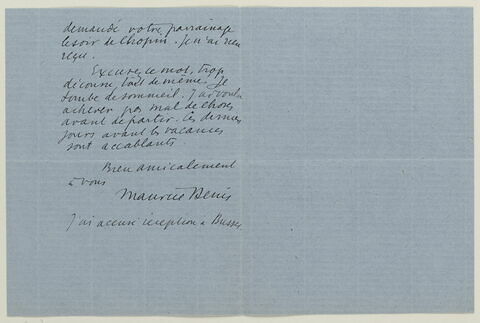 demandé votre parrainage
le soir de Chopin. Je n'ai rien
reçu.
Excusez ce mot, trop
décousu tout de même. Je
tombe de sommeil. J'ai voulu
achever pas mal de choses
avant de partir. Ces derniers
jours avant les vacances
sont accablants.
Bien amicalement
à vous
Maurice Denis
J'ai accusé réception à